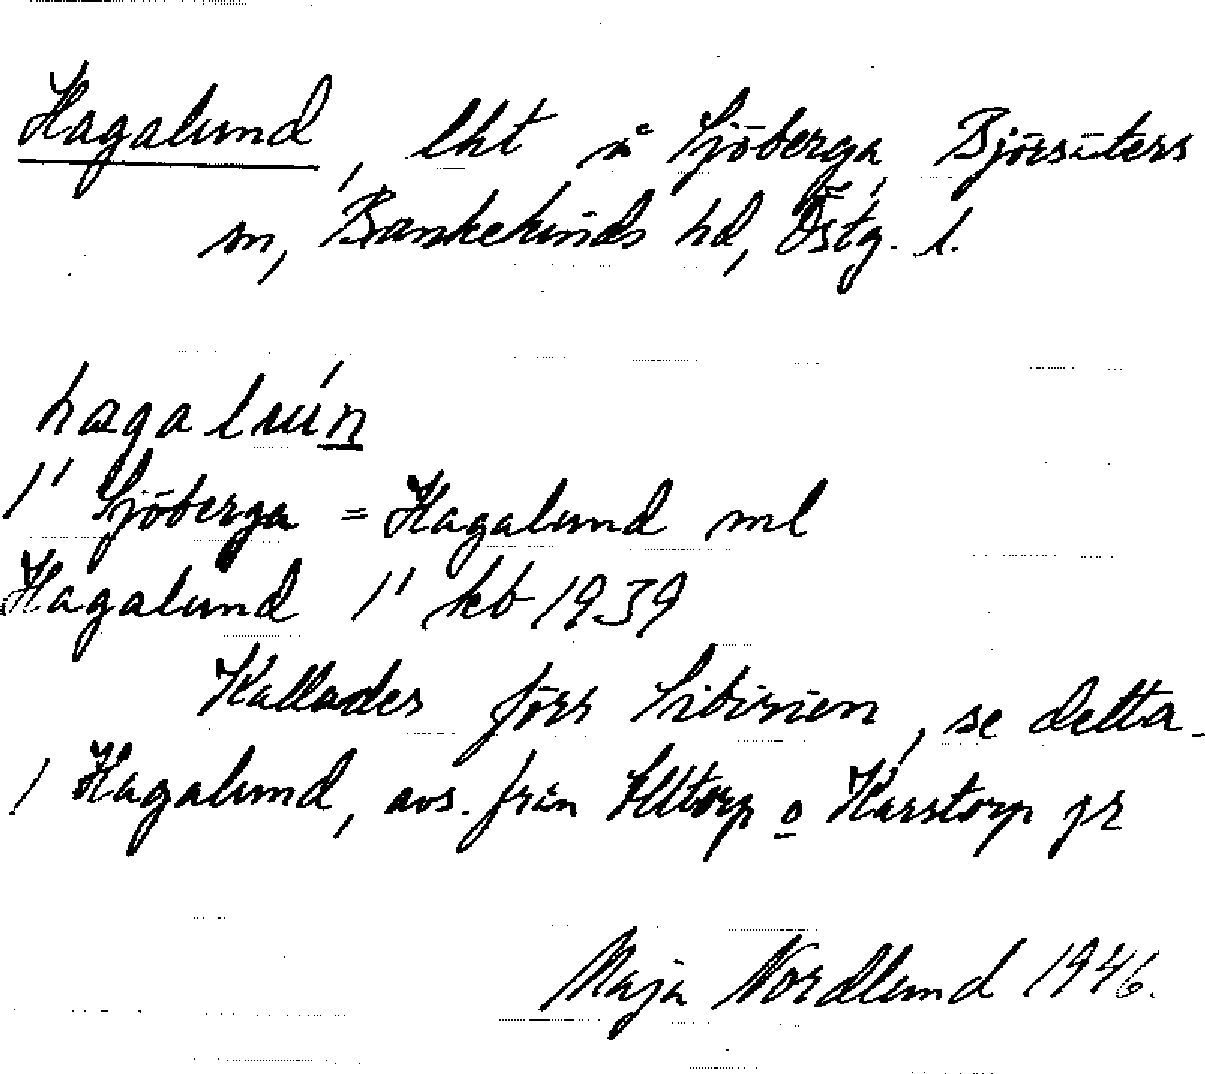 Hagalund, lht å Sjöberga, Björsäters
sn, Bankekinds hd, Östg. l.
hagalún
1' Sjöberga = Hagalund ml
Hagalund 1' kb 1939
Kallades förr Sibirien, se detta.
1 Hagalund, avs. från Ulltorp o Karstorp jr
Maja Nordlund 1946.